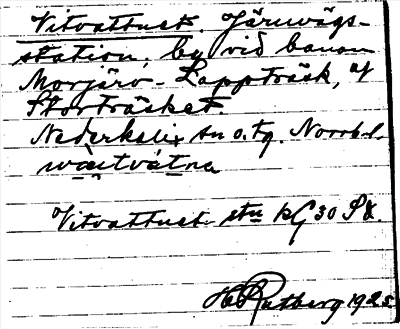 Vitvattnet. Järnvägs-
station, by vid banan
Morjärv-Lappträsk, af
Storträsket.
Nederkalix sn o. tg. Norrb. l.
Vitvattnet stn kG 30
H Rutberg 1925